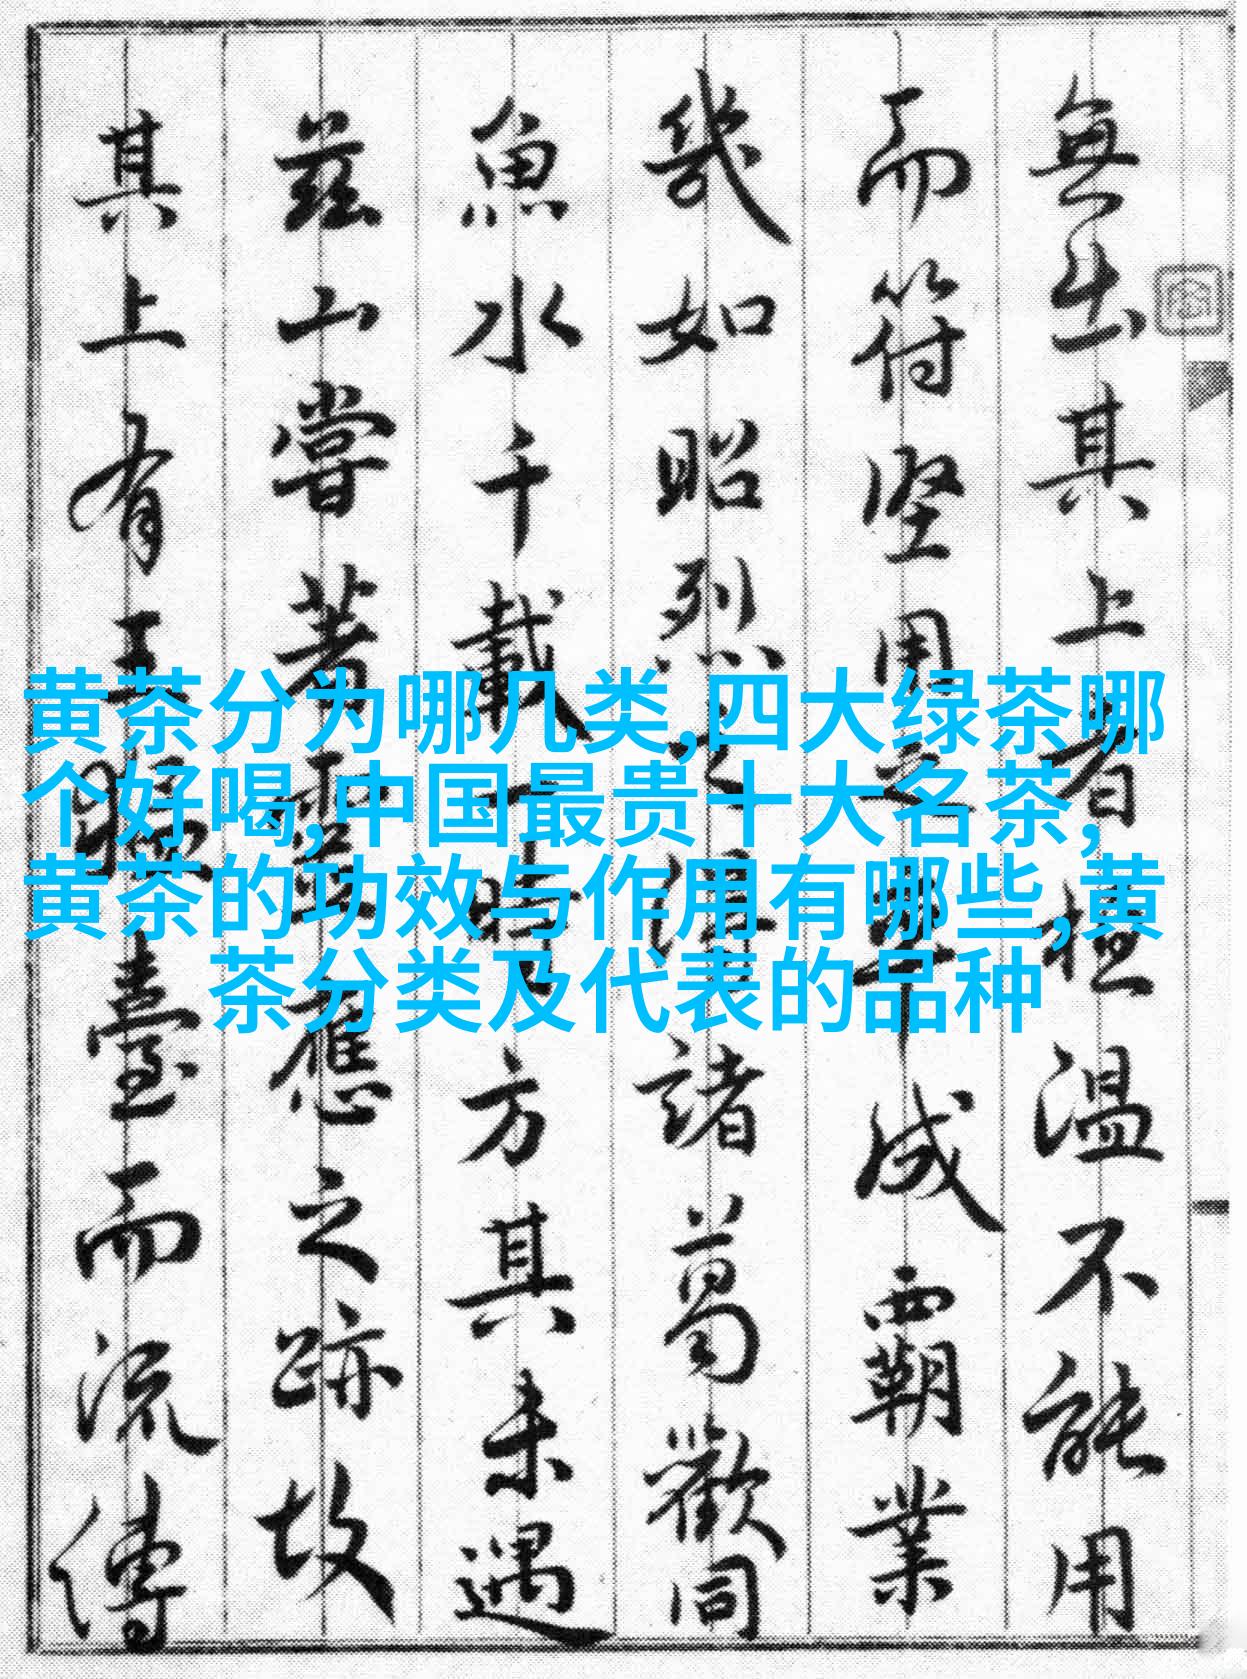 無出其上者桓温不能用
而符堅用之成霸業
幾如昭烈之諸葛歡同
魚水千載一時方其未遇
茲山嘗著靈應之跡故
其上有王臺而流傳
黄茶分为哪几类,四大绿茶哪
个好喝,中国最贵十大名茶,
黄茶的功效与作用有哪些,黄
茶分类及代表的品种